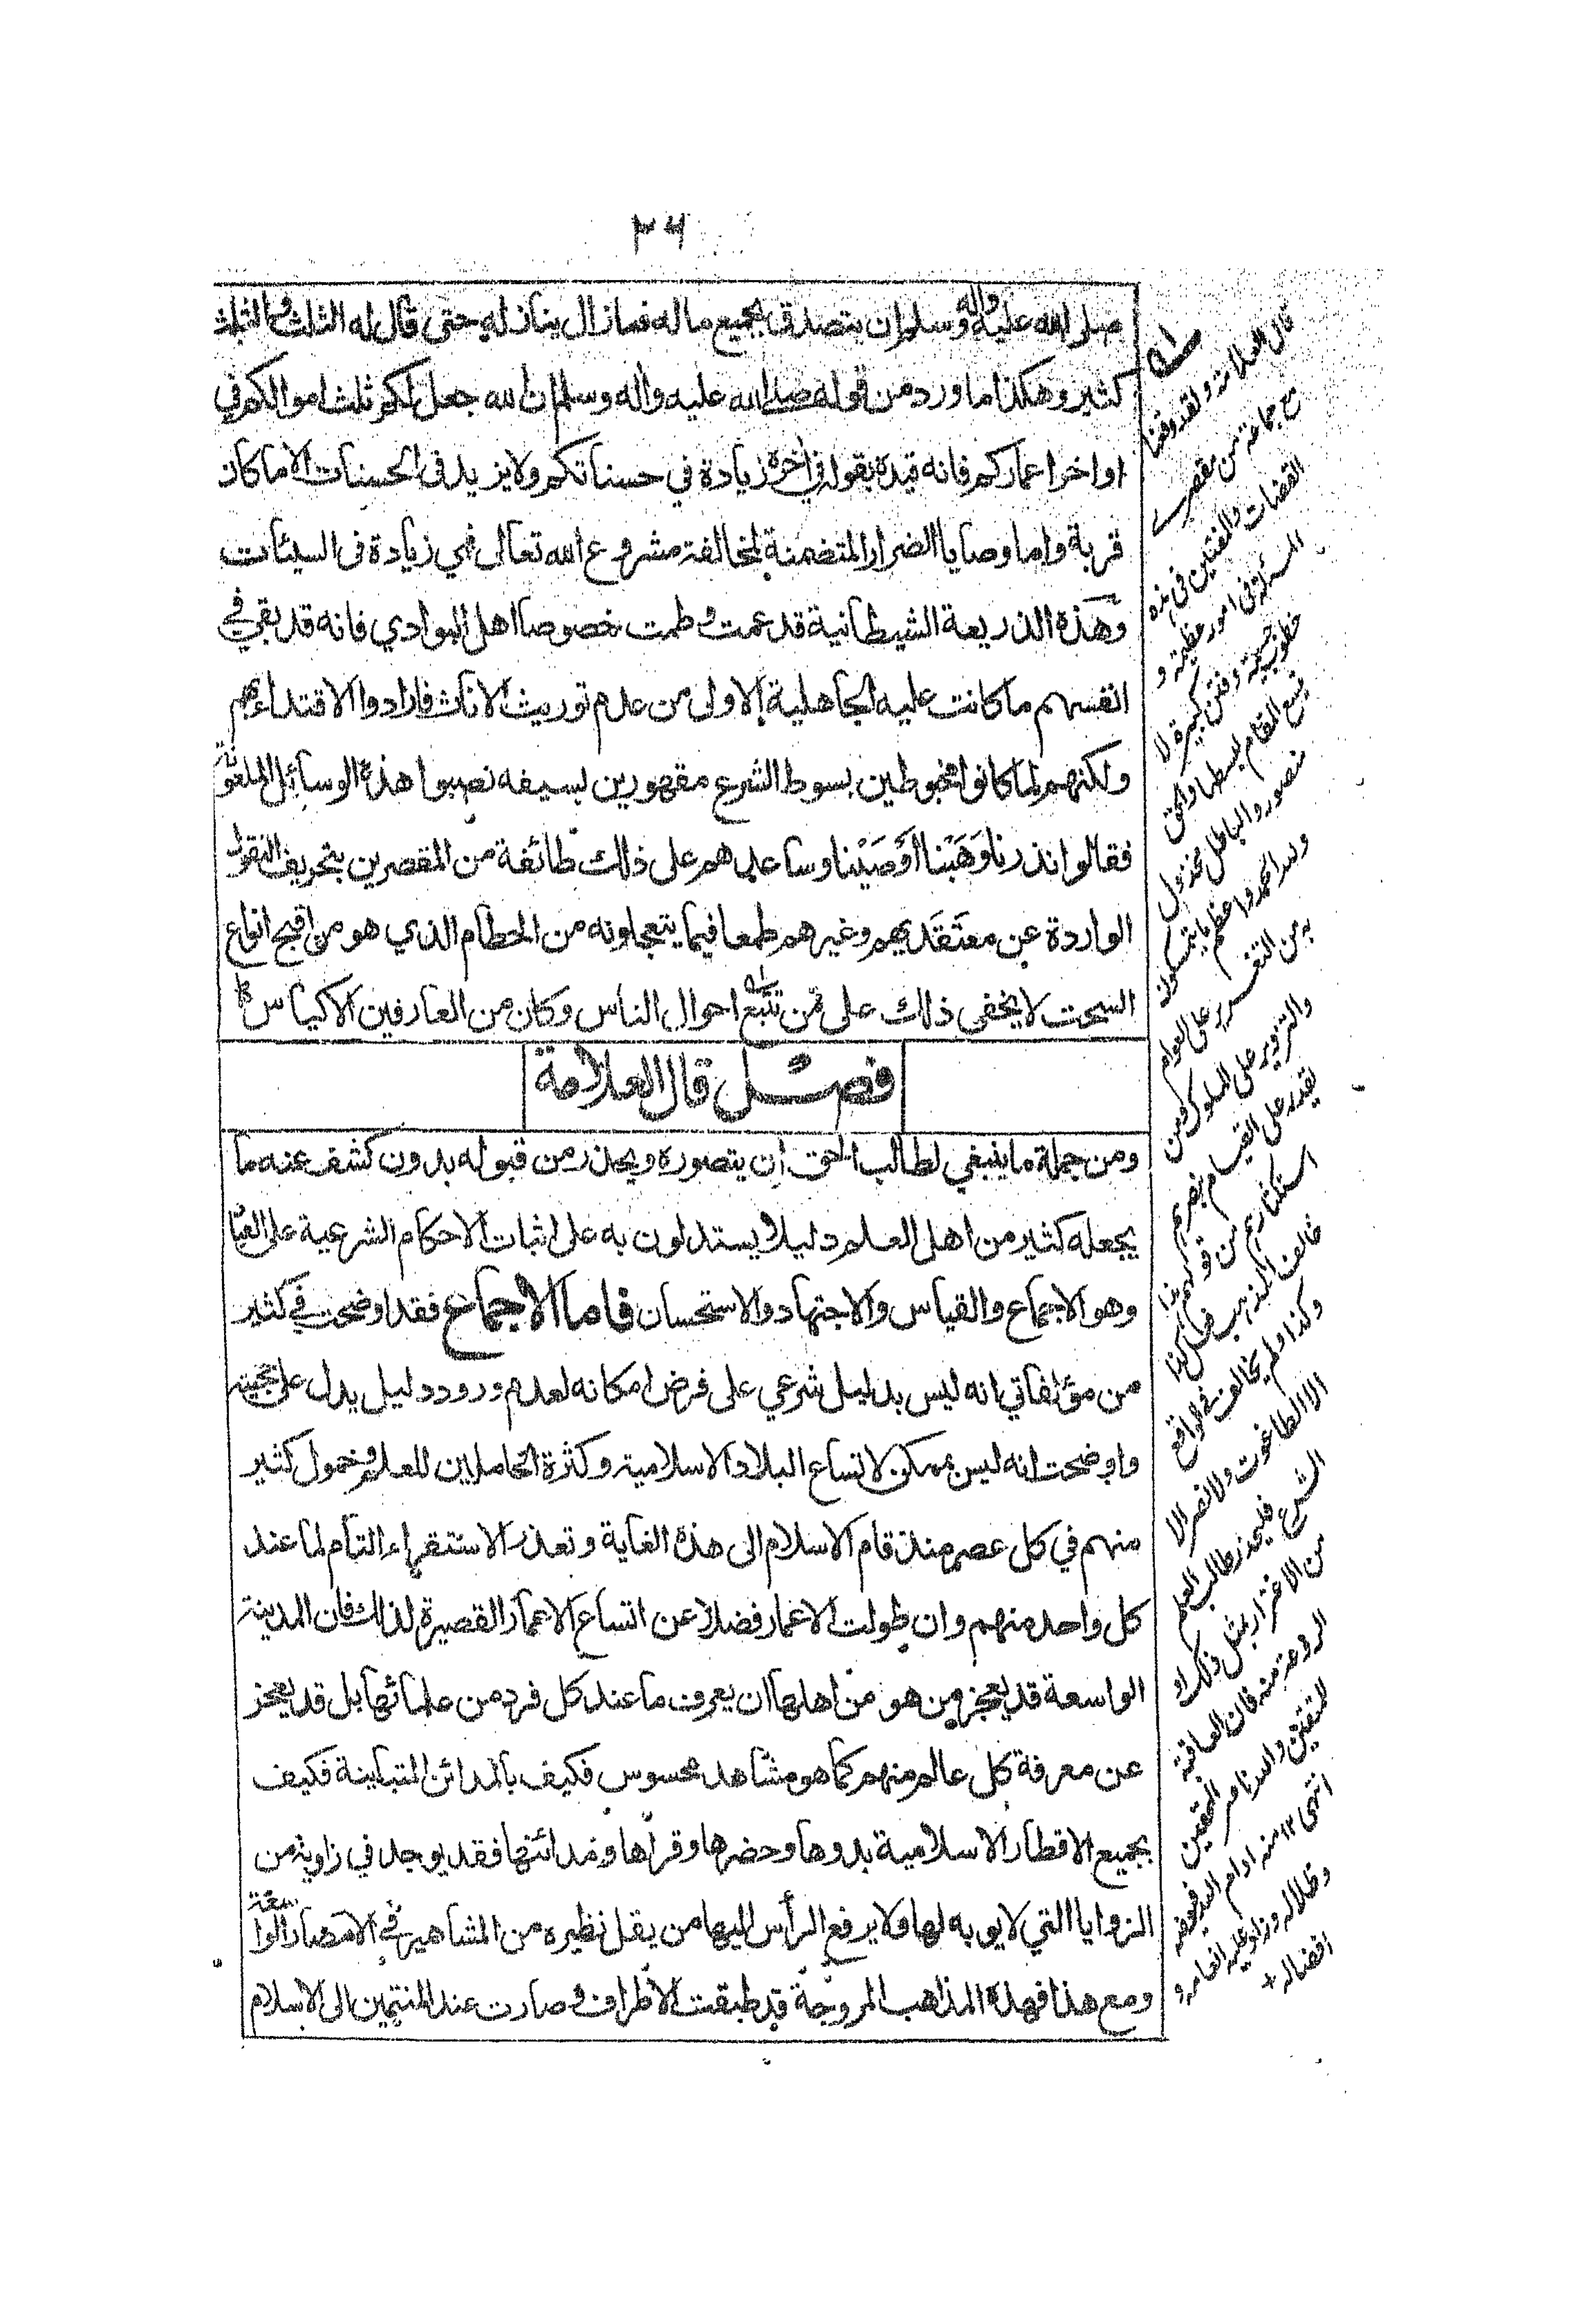 ٣٦
صلى الله عليه واله وسلم ان يتصدق بجميع ماله فما زال ينازله حتى قال له الثلث والثلث
كثير وهكذا ما ورد من قوله صلى الله عليه واله وسلم ان الله جعل لكم ثلث اموالكم في
اواخر اعماركم فانه قيده بقوله في اخره زيادة في حسناتكم ولا يزيد في الحسنات الا ما كان
قربة واما وصايا الضرار المتضمنة لمخالفة مشروع الله تعالى فهي زيادة في السيئات
وهذه الذريعة الشيطانية قد عمت وطمت خصوصا اهل البوادي فانه قد بقي في
انفسهم ما كانت عليه الجاهلية الاولى من عدم توريث الاناث فارادوا الاقتداء بهم
ولكنهم لما كانوا مخبوطين بسوط الشرع مقهورين بسيفه نصبوا هذه الوسائل الملعونة
فقالوا نذرنا وَهَبْنا اَوصَيْنا وساعدهم على ذلك طائفة من المقصرين بتحريف النقول
الواردة عن معتقديهم وغيرهم طمعا فيما يتعجلونه من الحطام الذي هو من اقبح انواع
السحت لا يخفى ذلك على من تتبع احوال الناس وكان من العارفين الاكياس
فصل قال العلامة
ومن جملة ما ينبغي لطالب الحق ان يتصوره ويحذر من قبوله بدون كشف عنه ما
يجعله كثير من اهل العلم دليلا يستدلون به على اثبات الاحكام الشرعية على العباد
وهو الاجماع والقياس والاجتهاد والاستحسان فاما الاجماع فقد اوضحت في كثير
من مؤلفاتي انه ليس بدليل شرعي على فرض امكانه لعدم ورود دليل يدل على حجيته
واوضحت انه ليس بممكن لاتساع البلاد الاسلامية وكثرة الحاملين للعلم وخمول كثير
منهم في كل عصر منذ قام الاسلام الى هذه الغاية وتعذر الاستقراء التام لما عند
كل واحد منهم وان طولت الاعمار فضلا عن اتساع الاعمار القصيرة لذلك فان المدينة
الواسعة قد يعجز من هو من اهلها ان يعرف ما عند كل فرد من علمائها بل قد يعجز
عن معرفة كل عالم منهم كما هو مشاهد محسوس فكيف بالمدائن المتباينة فكيف
بجميع الاقطار الاسلامية بدوها وحضرها وقراها ومدائنها فقد يوجد في زاوية من
الزوايا التي لا يوبه لها ولا يرفع الرأس اليها من يقل نظيره من المشاهير في الامصار الواسعة
ومع هذا فهذه المذاهب المروجة قد طبقت الاطراف وصارت عند المنتمين الى الاسلام
قال العلامة ولقد وقعنا
مع جماعة من مقصرے
القضات والمفتين في هذه
المسألة في امور عظيمة و
خطوب جسيمة وفتن كبيرة لا
يتسع المقام لبسطها والحق
منصور والباطل مخذول
ولله الحمد واعظم ما يتمسكون
به من التغرير على العوام
والتزوير على الملوك ومن
يقدر على القيام بنصرهم
استكثارهم من قولهم هذا
خالف المذهب فعل كذا
وكذا ولم يخالف في الواقع
الا الطاغوت ولا نصر الا
الشرع فليحذر طالب العلم
من الاغترار بمثل ذلك او
الروعة منه فان العاقبة
للمتقين والله ناصر المحقين
انتهى ١٢ منه ادام الله فيوضه
وظلاله وزاد عليه انعامه و
افضاله +